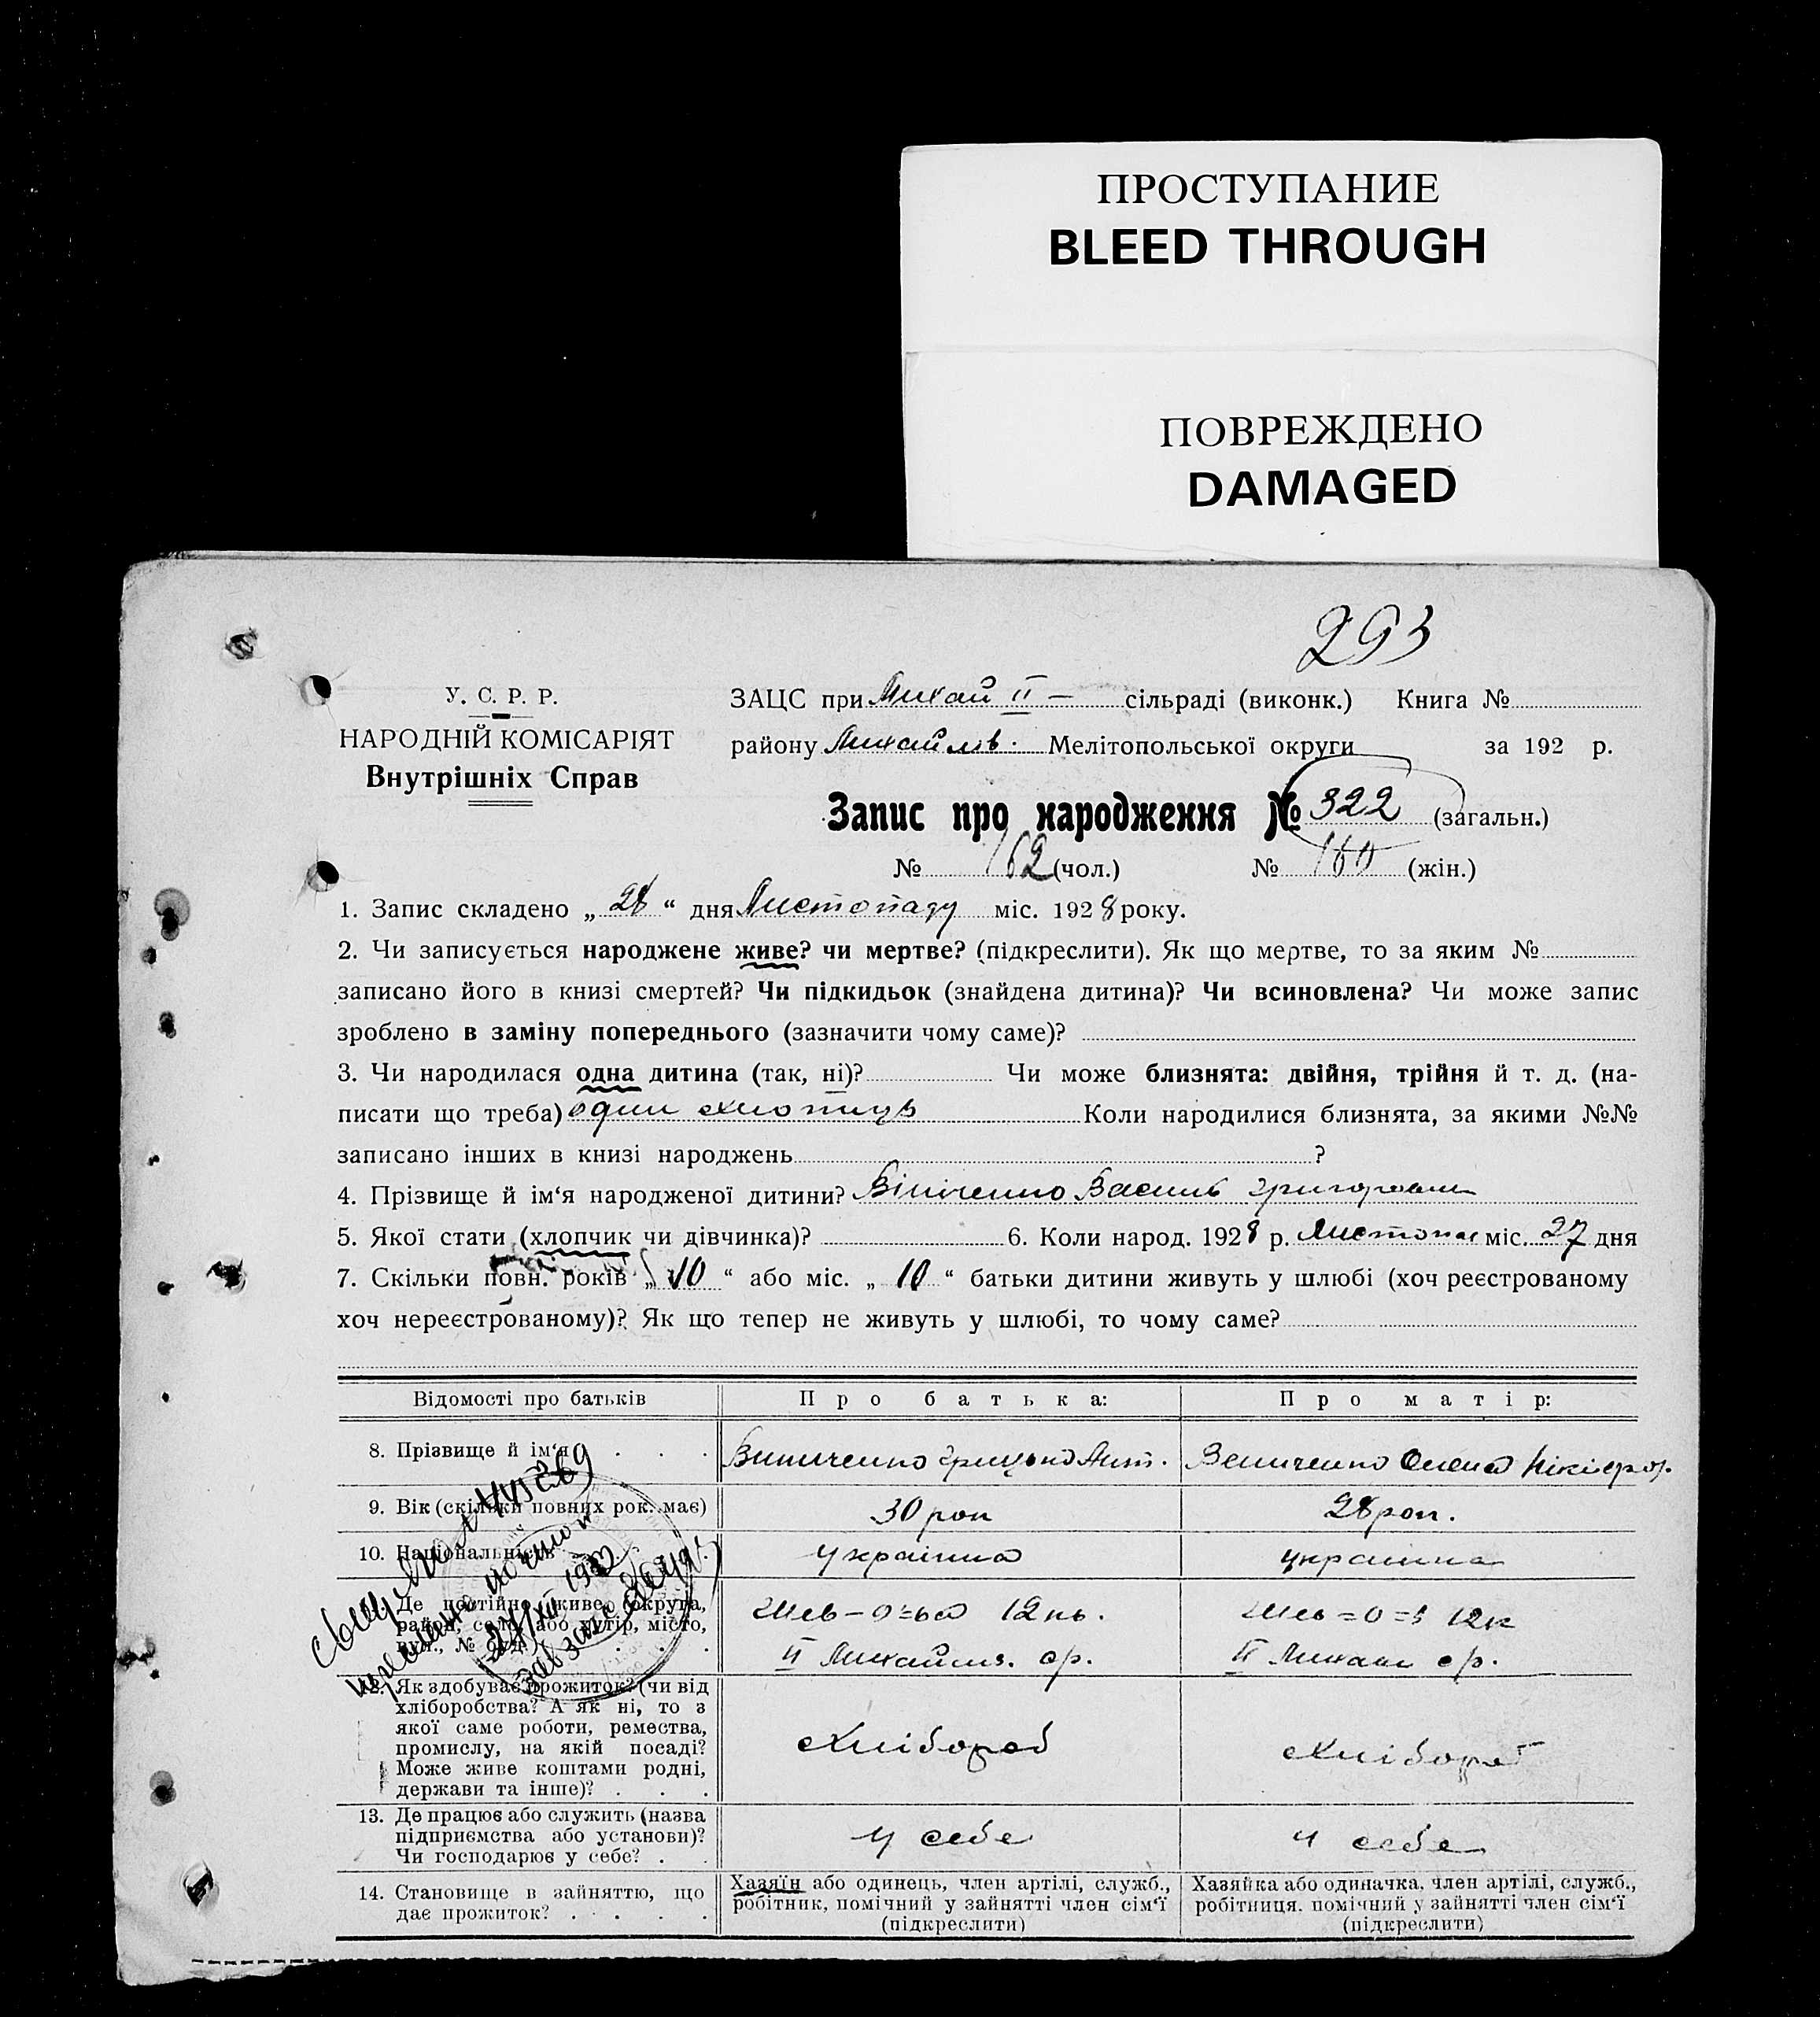 ПРОСТУПАНИЕ
BLEED THROUGH
ПОВРЕЖДЕНО
DAMAGED
293
У. С. Р. Р.
НАРОДНІЙ КОМІСАРІЯТ
Внутрішніх Справ
ЗАЦС при Михай II – сільраді (виконк.) Книга №
району Михайлів. Мелітопольської округи за 192 р.
Запис про народження № 322 (загальн.)
№ 162 (чол.) № 160 (жін.)
1. Запис складено „ 28 “ дня Листопаду міс. 1928 року.
2. Чи записується народжене живе? чи мертве? (підкреслити). Як що мертве, то за яким №
записано його в книзі смертей? Чи підкидьок (знайдена дитина)? Чи всиновлена? Чи може запис
зроблено в заміну попереднього (зазначити чому саме)?
3. Чи народилася одна дитина (так, ні)? Чи може близнята: двійня, трійня й т. д. (на-
писати що треба) один хлопець Коли народилися близнята, за якими №№
записано інших в книзі народжень ?
4. Прізвище й ім‘я народженої дитини? Вініченко Василь Григорович
5. Якої стати (хлопчик чи дівчинка)? 6. Коли народ. 1928 р. Листопад міс. 27 дня
7. Скільки повн. років „ 10 “ або міс. „ 10 “ батьки дитини живуть у шлюбі (хоч реєстрованому
хоч нереєстрованому)? Як що тепер не живуть у шлюбі, то чому саме?
Відомості про батьків Про батька: Про матір:
8. Прізвище й ім‘я . . . Виниченко Грицько Ант. Вениченко Олена Нікіфор.
9. Вік (скільки повних рок. має) 30 рок 28 рок.
10. Національність українец украинка
Де постійно живе (округа,
район, село або хутір, місто,
вул., № буд. . . . 12 кв. 12 к
II Михайлів. ср. II Михай ср.
12. Як здобуває прожиток? (чи від
хліборобства? А як ні, то з
якої саме роботи, ремества,
промислу, на якій посаді?
Може живе коштами родні,
держави та інше)? . . . Хлібороб Хлібороб
13. Де працює або служить (назва
підприємства або установи)?
Чи господарює у себе? . . У себе У себе
14. Становище в зайняттю, що
дає прожиток? . . . .
Хазяїн або одинець, член артілі, служб.,
робітник, помічний у зайнятті член сім‘ї
(підкреслити)
Хазяйка або одиначка, член артілі, служб.,
робітниця, помічний у зайнятті член сім‘ї
(підкреслити)